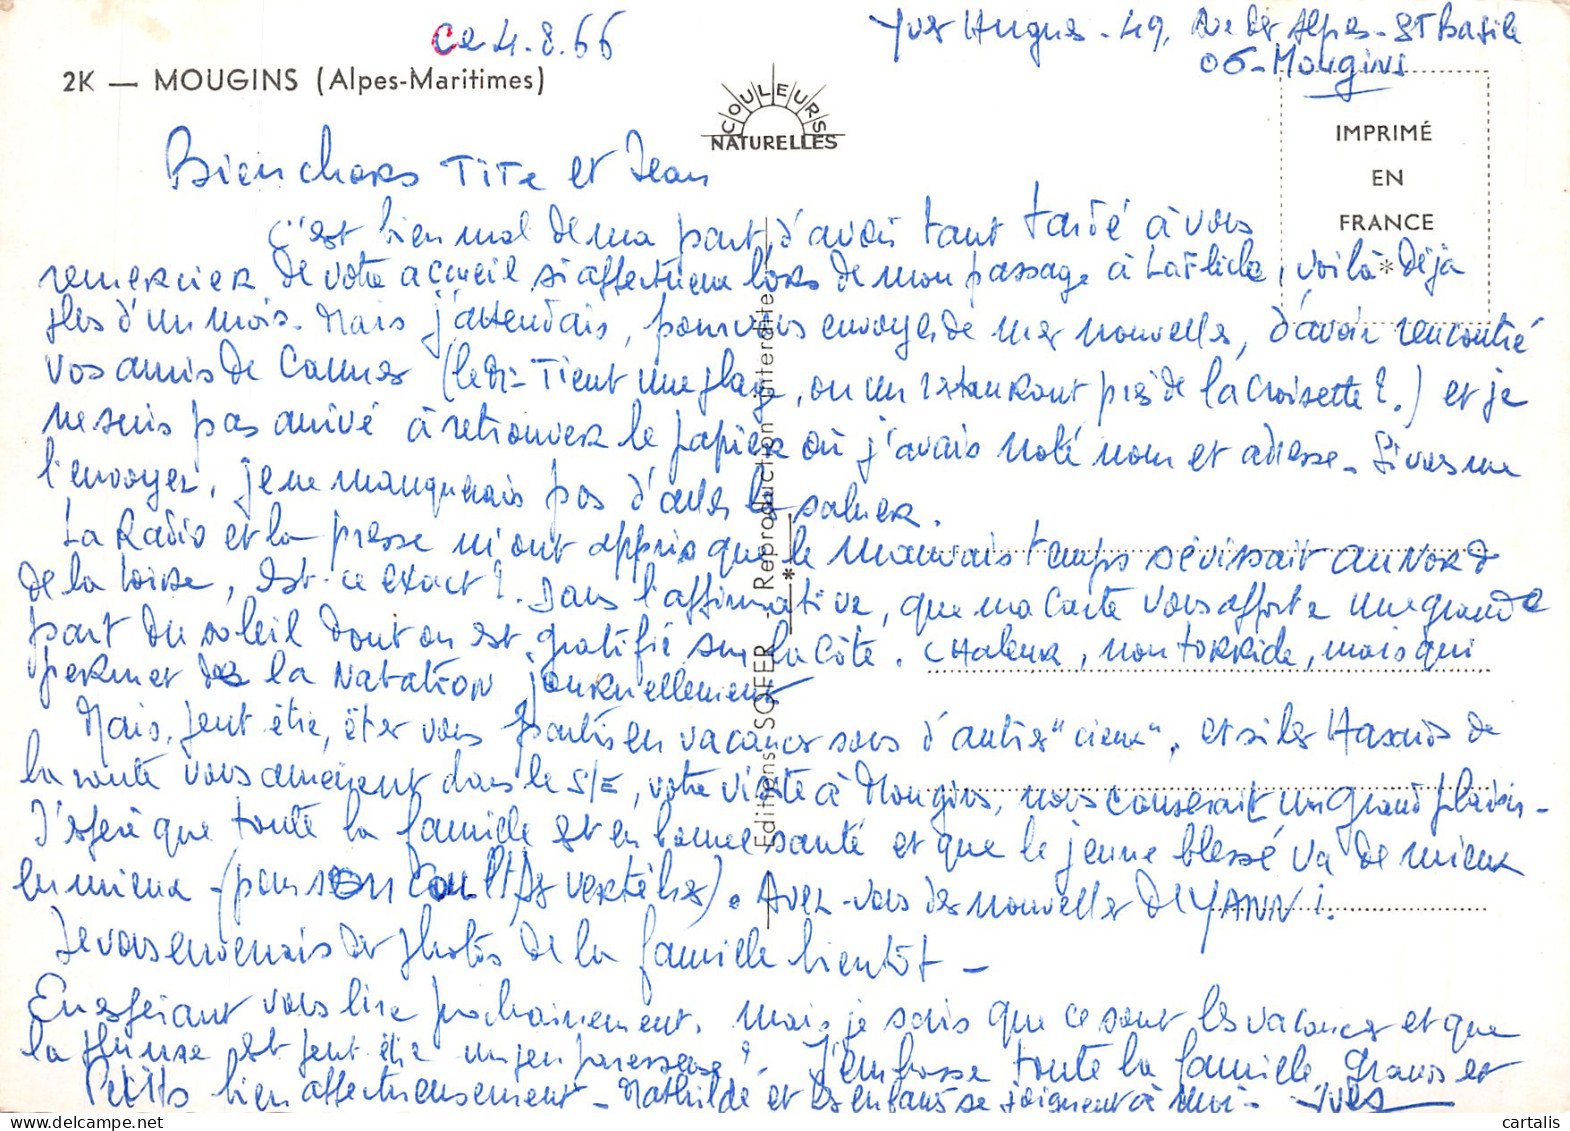 ce 4.8.66
Yves Hugues - 49, Ave des Alpes - St Basile
06 - Mougins
2K — MOUGINS (Alpes-Maritimes)
COULEURS
NATURELLES
IMPRIMÉ
EN
FRANCE
Bien chers TiTe et Jean
C'est bien mal de ma part, d'avoir tant tardé à vous
remercier de votre accueil si affectueux lors de mon passage à La Flèche, voilà déjà
plus d'un mois. Mais j'attendais, pour vous envoyer de mes nouvelles, d'avoir rencontré
vos amis de Cannes ( Tient une plage, ou un restaurant près de la Croisette ?.) et je
ne suis pas arrivé à retrouver le papier où j'avais noté nom et adresse. Si vous me
l'envoyez, je ne manquerais pas d'aller les saluer.
La Radio et la presse m'ont appris que le mauvais temps sévissait au Nord
de la Loire, Est-ce exact ? Dans l'affirmative, que ma carte vous apporte une grande
part du soleil dont on est gratifié sur la Côte. Chaleur, non torride, mais qui
permet la Natation journellement
Mais, peut être, êtes vous partis en vacances sous d'autres "cieux", et si les Hasards de
la route vous amenaient dans le S/E, votre visite à Mougins, nous causerait un grand plaisir -
J'espère que toute la famille est en bonne santé et que le jeune blessé va de mieux
en mieux (pour son cou et ses vertèbres). Avez-vous des nouvelles de YANNi.
Je vous enverrais des photos de la famille bientôt -
En espérant vous lire prochainement, mais je sais que ce sont les vacances et que
la plume est peut être un peu paresseuse ? J'embrasse toute la famille, Grands et
Petits bien affectueusement - Mathilde et les enfants se joignent à moi - Yves
Editions SOFER - Reproduction interdite
cartalis
delcampe.net